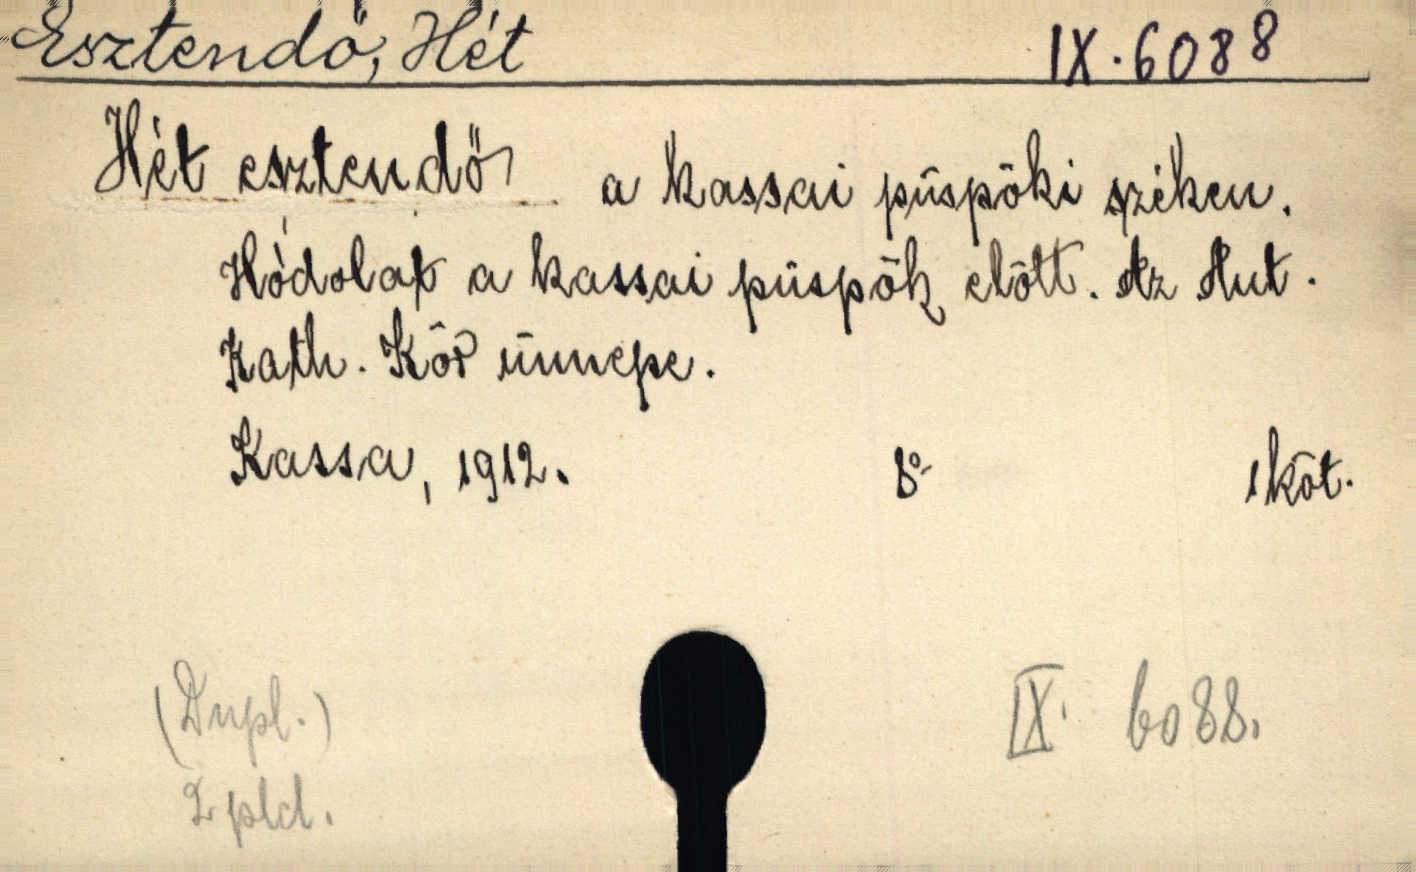 Esztendő, Hét IX. 6088
Hét esztendő a kassai püspöki széken.
Hódolat a kassai püspök előtt. Az Aut.
Kath. Kör ünnepe.
Kassa, 1912. 8° 1 köt.
(Dupl.) IX. 6088.
2 pld.